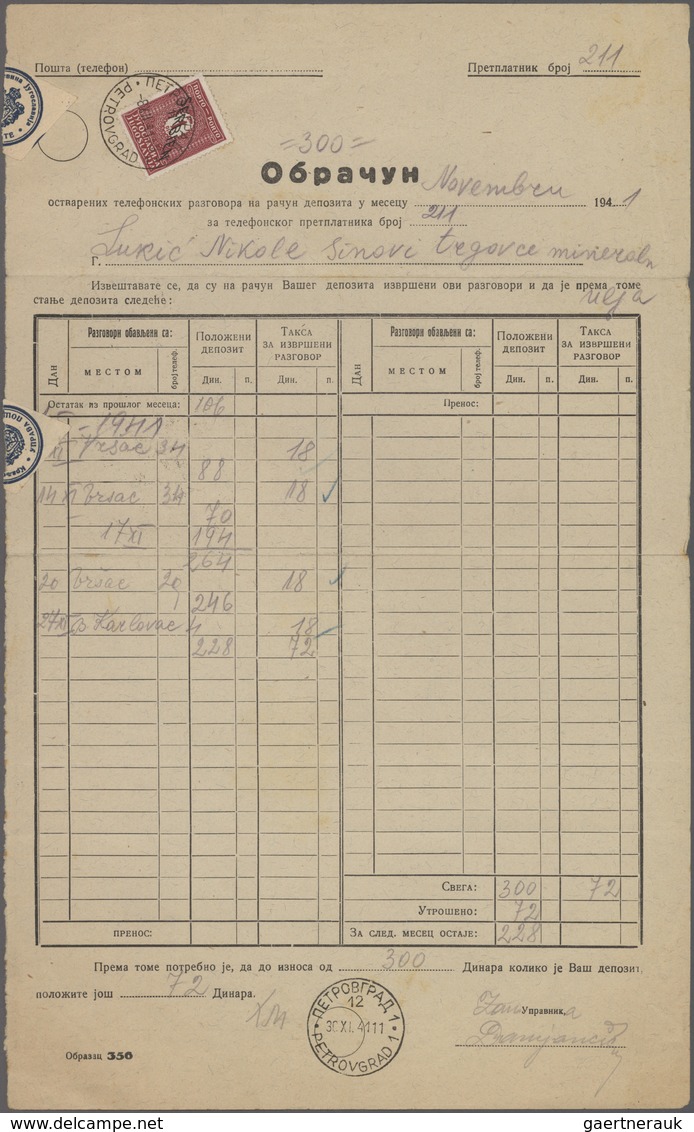 Пошта (телефон) Претплатник број 211
ПЕТРОВГРАД
PETROVGRAD
PORTO-PORTO
=300=
Обрачун Novembru
остварених телефонских разговора на рачун депозита у месецу 194 1
за телефонског претплатника број 211
Г. Lukić Nikole sinovi trgovce mineraln
ulja
Извештавате се, да су на рачун Вашег депозита извршени ови разговори и да је према томе
стање депозита следеће:
Дан Разговори обављени са: МЕСТОМ број телеф. Положени депозит Дин. п. Такса за извршени разговор Дин. п.
Дан Разговори обављени са: МЕСТОМ број телеф. Положени депозит Дин. п. Такса за извршени разговор Дин. п.
Остатак из прошлог месеца: 166 Пренос:
1941
XI Vršac 34 18
88
14 XI Vršac 34 18
70
17 XI 194
264
20 Vršac 20 18
246
27 XI B Karlovac 4 18
228 72
Свега: 300 72
Утрошено: 72
ПРЕНОС: За след. месец остаје: 228
Према томе потребно је, да до износа од 300 Динара колико је Ваш депозит,
положите још 72 Динара.
ПЕТРОВГРАД 1
12
30 XI. 41 11
PETROVGRAD 1
Zam Управник, a
Образац 350
gaertnerauk